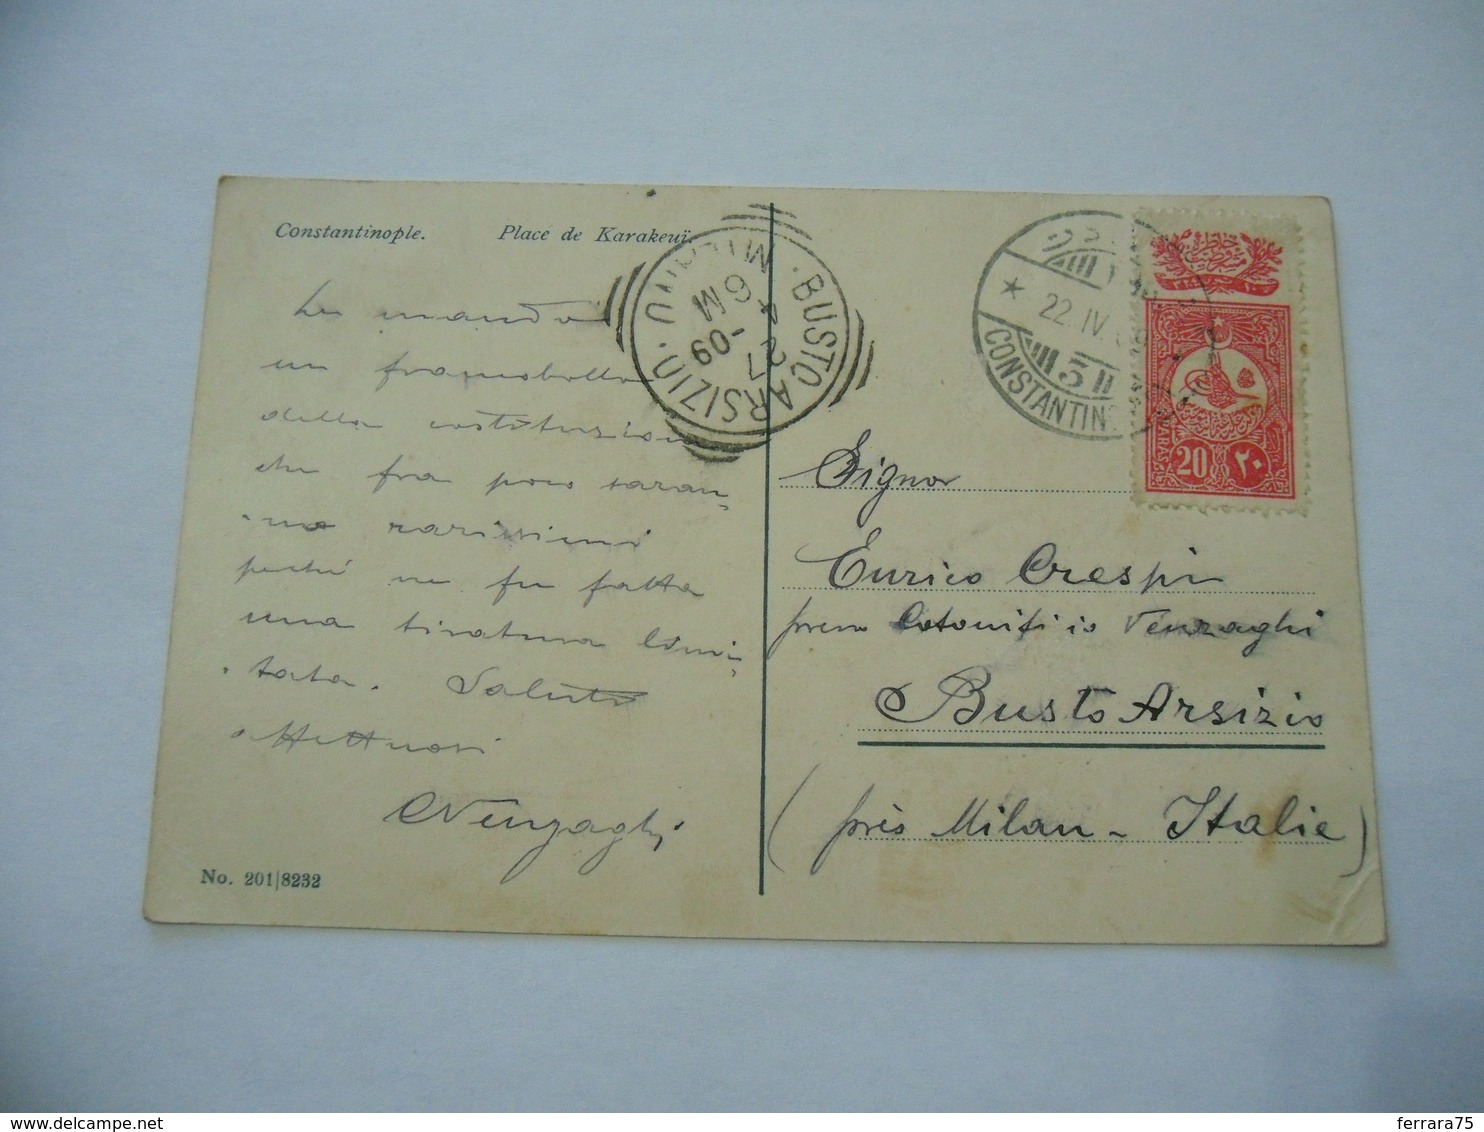 Constantinople. Place de Karakeuï.
Le mando
un francobollo
della costituzione
che fra poco saran-
-no rarissimi
perché ne fu fatta
una tiratura limi-
-tata. Saluti
affettuosi
Venzaghi
No. 201|8232
BUSTO ARSIZIO
MILANO
27 4 -09
6 M
22. IV. 09
5
CONSTANTINO
PARAS
20 ٢٠
Signor
Enrico Crespi
presso Cotonificio Venzaghi
Busto Arsizio
(près Milan - Italie)
ferrara75